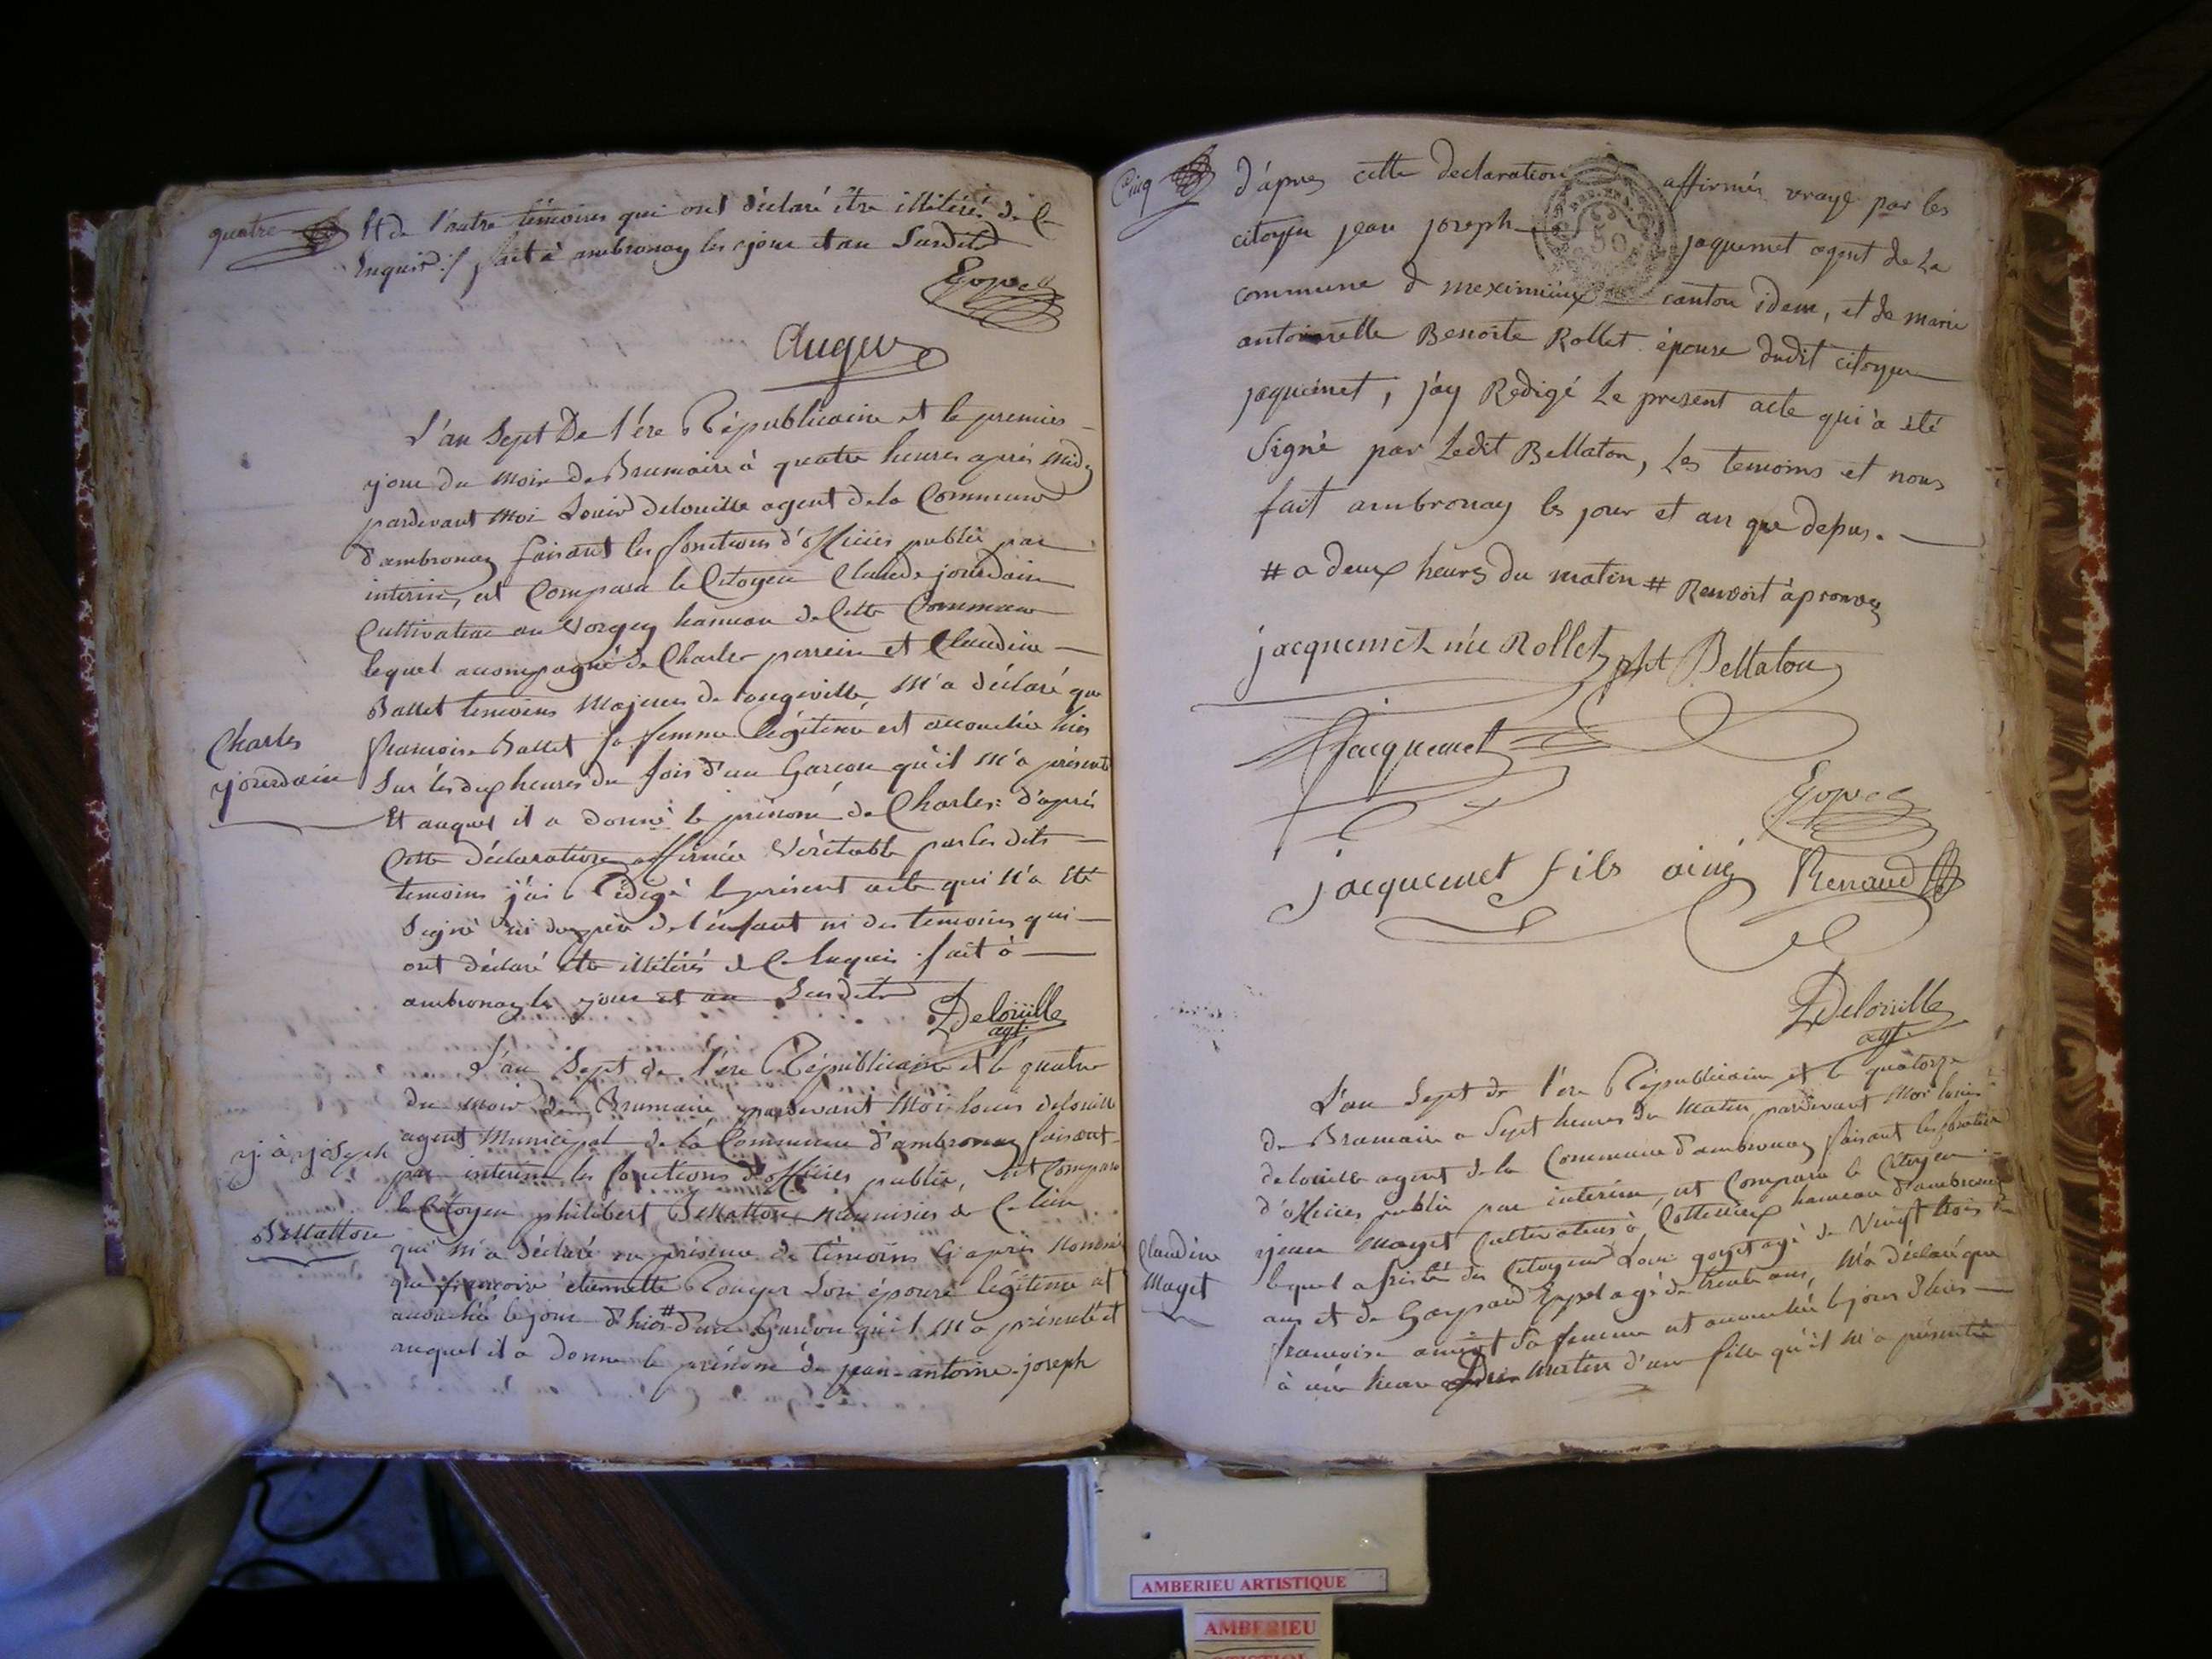 quatre
Et de l'autre témoins qui ont déclaré être illitérés de ce
Enquis :/ fait à ambronay les jour et an Susdits
Auger
L'an Sept De l'ére Républicaine et le premier
jour du Mois de Brumaire à quatre heures après midy
pardevant Moi Louis Delouille agent de la Commune
d'ambronay faisant les fonctions d'officier public par
interim, est Comparu le Citoyen Claude jourdain
Cultivateur au Vorgey hameau de Cette Commune
lequel acompagné de Charles perrein et Claudine
Ballet temoins Majeurs de Longeville, M'a déclaré que
francoise Ballet sa femme légitime est acouchée hier
Sur les dix heures du soir d'un Garcon qu'il M'a présenté
Et auquel il a donné le prénom de Charles: d'après
Cette déclaration affirmée Véritable par les dits
temoins j'ai Rédigé le présent acte qui N'a été
Signé ni du père de l'enfant ni des temoins qui
ont déclaré etre illitérés de Ce Enquis fait à
ambronay les jour et an Susdits
Delouille
agt.
Charles
jourdain
L'an Sept de l'ére Républicaine et le quatre
du mois de Brumaire pardevant Moi louis delouille
agent Municipal de la Commune d'ambronay faisant
par interim les fonctions d'officier public, est Comparu
le Citoyen philibert Bellatton Menuisier de Ce lieu
qui M'a déclaré en présence de témoins Ci après Nommés
que francoise etiennette Rouyer Son épouse légitime est
acouchée le jour d'hier # d'un Garcon qu'il M'a présenté et
auquel il a donné le prénom de jean-antoine-joseph
j: a: joseph
Bellatton
Cinq
d'aprés cette declaration affirmée vraye par les
citoyen jean joseph jaquemet agent de La
commune d meximieux canton idem, et de marie
antoinette Benoite Rollet épouse dudit citoyen
jaquemet, j'ay Redigé Le present acte qui à été
Signé par Ledit Bellaton, Les temoins et nous
fait ambronay les jour et an que depus.
# a deux heures du matin # Renvoit àprouvez
jacquemet née Rollet pht Bellaton
Jacquemet
jacquemet fils ainé Renaud
Delouille
agt.
L'an Sept de l'ére Républicaine et le quatorze
de Brumaire a Sept heures du Matin, pardevant Moi louis
delouille agent de la Commune d'ambronay faisant les fonctions
d'officier public par interim, est Comparu le Citoyen
jean Mayet Cultivateur à Cottelieux hameau d'ambronay
lequel assisté du Citoyen Louis goyet agé de Vingt trois
ans et de Gaspard Eppel agé de trente ans, M'a déclaré que
francoise sa femme est acouchée le jour d'hier
à une heure du Matin d'une fille qu'il M'a présentée
Claudine
Mayet
AMBERIEU ARTISTIQUE
AMBERIEU
ARTISTIQUE